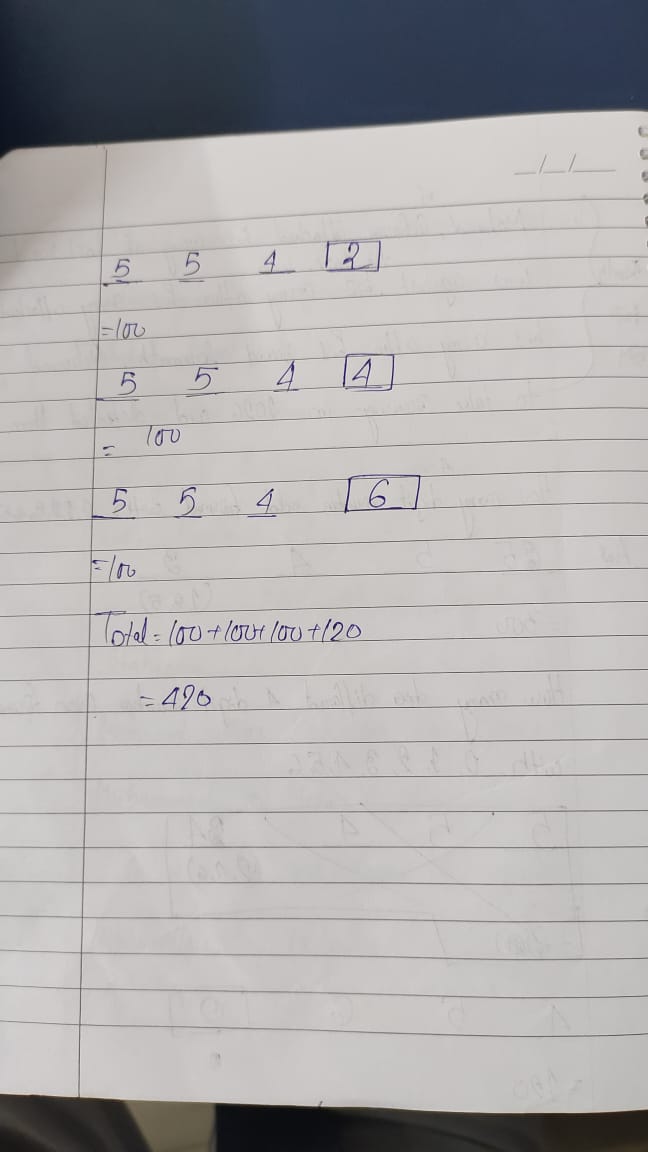 _/_/_
5 5 4 2
=100
5 5 4 4
= 100
5 5 4 6
=100
Total = 100+100+100+120
= 420